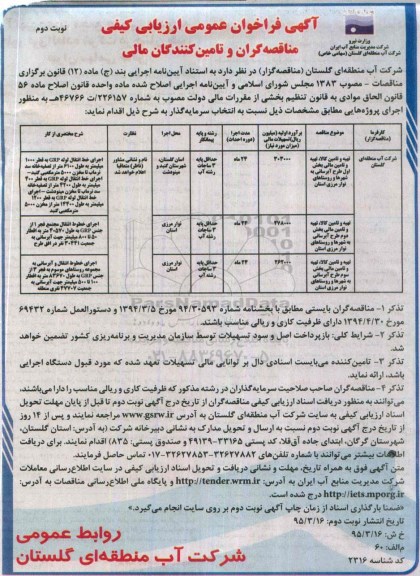 وزارت نیرو
شرکت مدیریت منابع آب ایران
شرکت آب منطقه‌ای گلستان (سهامی خاص)
نوبت دوم
آگهی فراخوان عمومی ارزیابی کیفی
مناقصه‌گران و تامین‌کنندگان مالی
شرکت آب منطقه‌ای گلستان (مناقصه‌گزار) در نظر دارد به استناد آیین‌نامه اجرایی بند (ج) ماده (۱۲) قانون برگزاری
مناقصات - مصوب ۱۳۸۳ مجلس شورای اسلامی و آیین‌نامه اجرایی اصلاح شده ماده واحده قانون اصلاح ماده ۵۶
قانون الحاق موادی به قانون تنظیم بخشی از مقررات مالی دولت مصوب به شماره ۲۲۶۱۵۷/ت۴۶۷۶۶هـ به منظور
اجرای پروژه‌هایی مطابق مشخصات ذیل نسبت به انتخاب سرمایه‌گذار به شرح ذیل اقدام نماید:
کارفرما (مناقصه‌گزار) موضوع برآورد اولیه (میلیون ریال) مدت اجرا رشته و پایه پیمانکار محل اجرا نظارت شرح مختصری از کار
شرکت آب منطقه‌ای گلستان
تهیه و تامین کالا، تهیه و تامین مالی بخش اول طرح آبرسانی به شهرها و روستاهای نوار مرزی استان ۳۰۳۰۰۰ ۲۴ ماه حداقل پایه ۳ ساجات رشته آب
تهیه و تامین کالا، تهیه و تامین مالی بخش دوم طرح آبرسانی به شهرها و روستاهای نوار مرزی استان ۴۷۸۰۰۰ ۲۴ ماه حداقل پایه ۳ ساجات رشته آب نوار مرزی استان
تهیه و تامین کالا، تهیه و تامین مالی بخش سوم طرح آبرسانی به شهرها و روستاهای نوار مرزی استان ۲۶۲۰۰۰ ۲۴ ماه حداقل پایه ۳ ساجات رشته آب نوار مرزی استان
تذکر ۱- مناقصه‌گران بایستی مطابق با بخشنامه شماره ۹۴/۳۰۵۹۲ مورخ ۱۳۹۴/۳/۵ و دستورالعمل شماره ۶۹۴۳۲
مورخ ۱۳۹۴/۴/۳۰ دارای ظرفیت کاری و ریالی مناسب باشند.
تذکر ۲- شرایط کلی: بازپرداخت اصل و سود تسهیلات توسط سازمان مدیریت و برنامه‌ریزی کشور تضمین خواهد
شد.
تذکر ۳- تامین‌کننده می‌بایست اسنادی دال بر توانایی مالی تسهیلات تعهد شده که مورد قبول دستگاه اجرایی
باشد، ارائه نماید.
تذکر ۴- مناقصه‌گران صاحب صلاحیت سرمایه‌گذاران در رشته مذکور که ظرفیت کاری و ریالی مناسب را دارا می‌باشند،
می‌توانند به منظور دریافت اسناد ارزیابی کیفی مناقصه‌گران از تاریخ درج آگهی نوبت دوم تا قبل از پایان مهلت تحویل
اسناد ارزیابی کیفی به سایت شرکت آب منطقه‌ای گلستان به آدرس www.gsrw.ir مراجعه نمایند و پس از ۱۴ روز
از تاریخ درج آگهی نوبت دوم نسبت به ارسال و تحویل مدارک به نشانی دبیرخانه شرکت (به آدرس: استان گلستان،
شهرستان گرگان، ابتدای جاده آق‌قلا، کد پستی ۳۳۱۶۵-۴۹۱۳۹ و صندوق پستی: ۸۳۵) اقدام نمایند. برای دریافت
اطلاعات بیشتر می‌توانند با شماره تلفن‌های ۳۲۶۲۷۸۸۲-۳۲۶۲۷۸۵۳-۰۱۷ تماس حاصل فرمایند.
متن آگهی فوق به همراه تاریخ، مهلت و نشانی دریافت و تحویل اسناد ارزیابی کیفی در سایت اطلاع‌رسانی معاملات
شرکت مدیریت منابع آب ایران به آدرس: http://tender.wrm.ir و پایگاه ملی اطلاع‌رسانی مناقصات به آدرس:
http://iets.mporg.ir درج شده است.
«ضمنا بارگذاری اسناد از زمان چاپ آگهی نوبت دوم بر روی سایت انجام می‌گیرد.»
تاریخ انتشار نوبت دوم: ۹۵/۳/۱۶
خ ش: ۹۵/۳/۱۶
م‌الف: ۶۰
کد شناسه ۲۳۱۶
روابط عمومی
شرکت آب منطقه‌ای گلستان